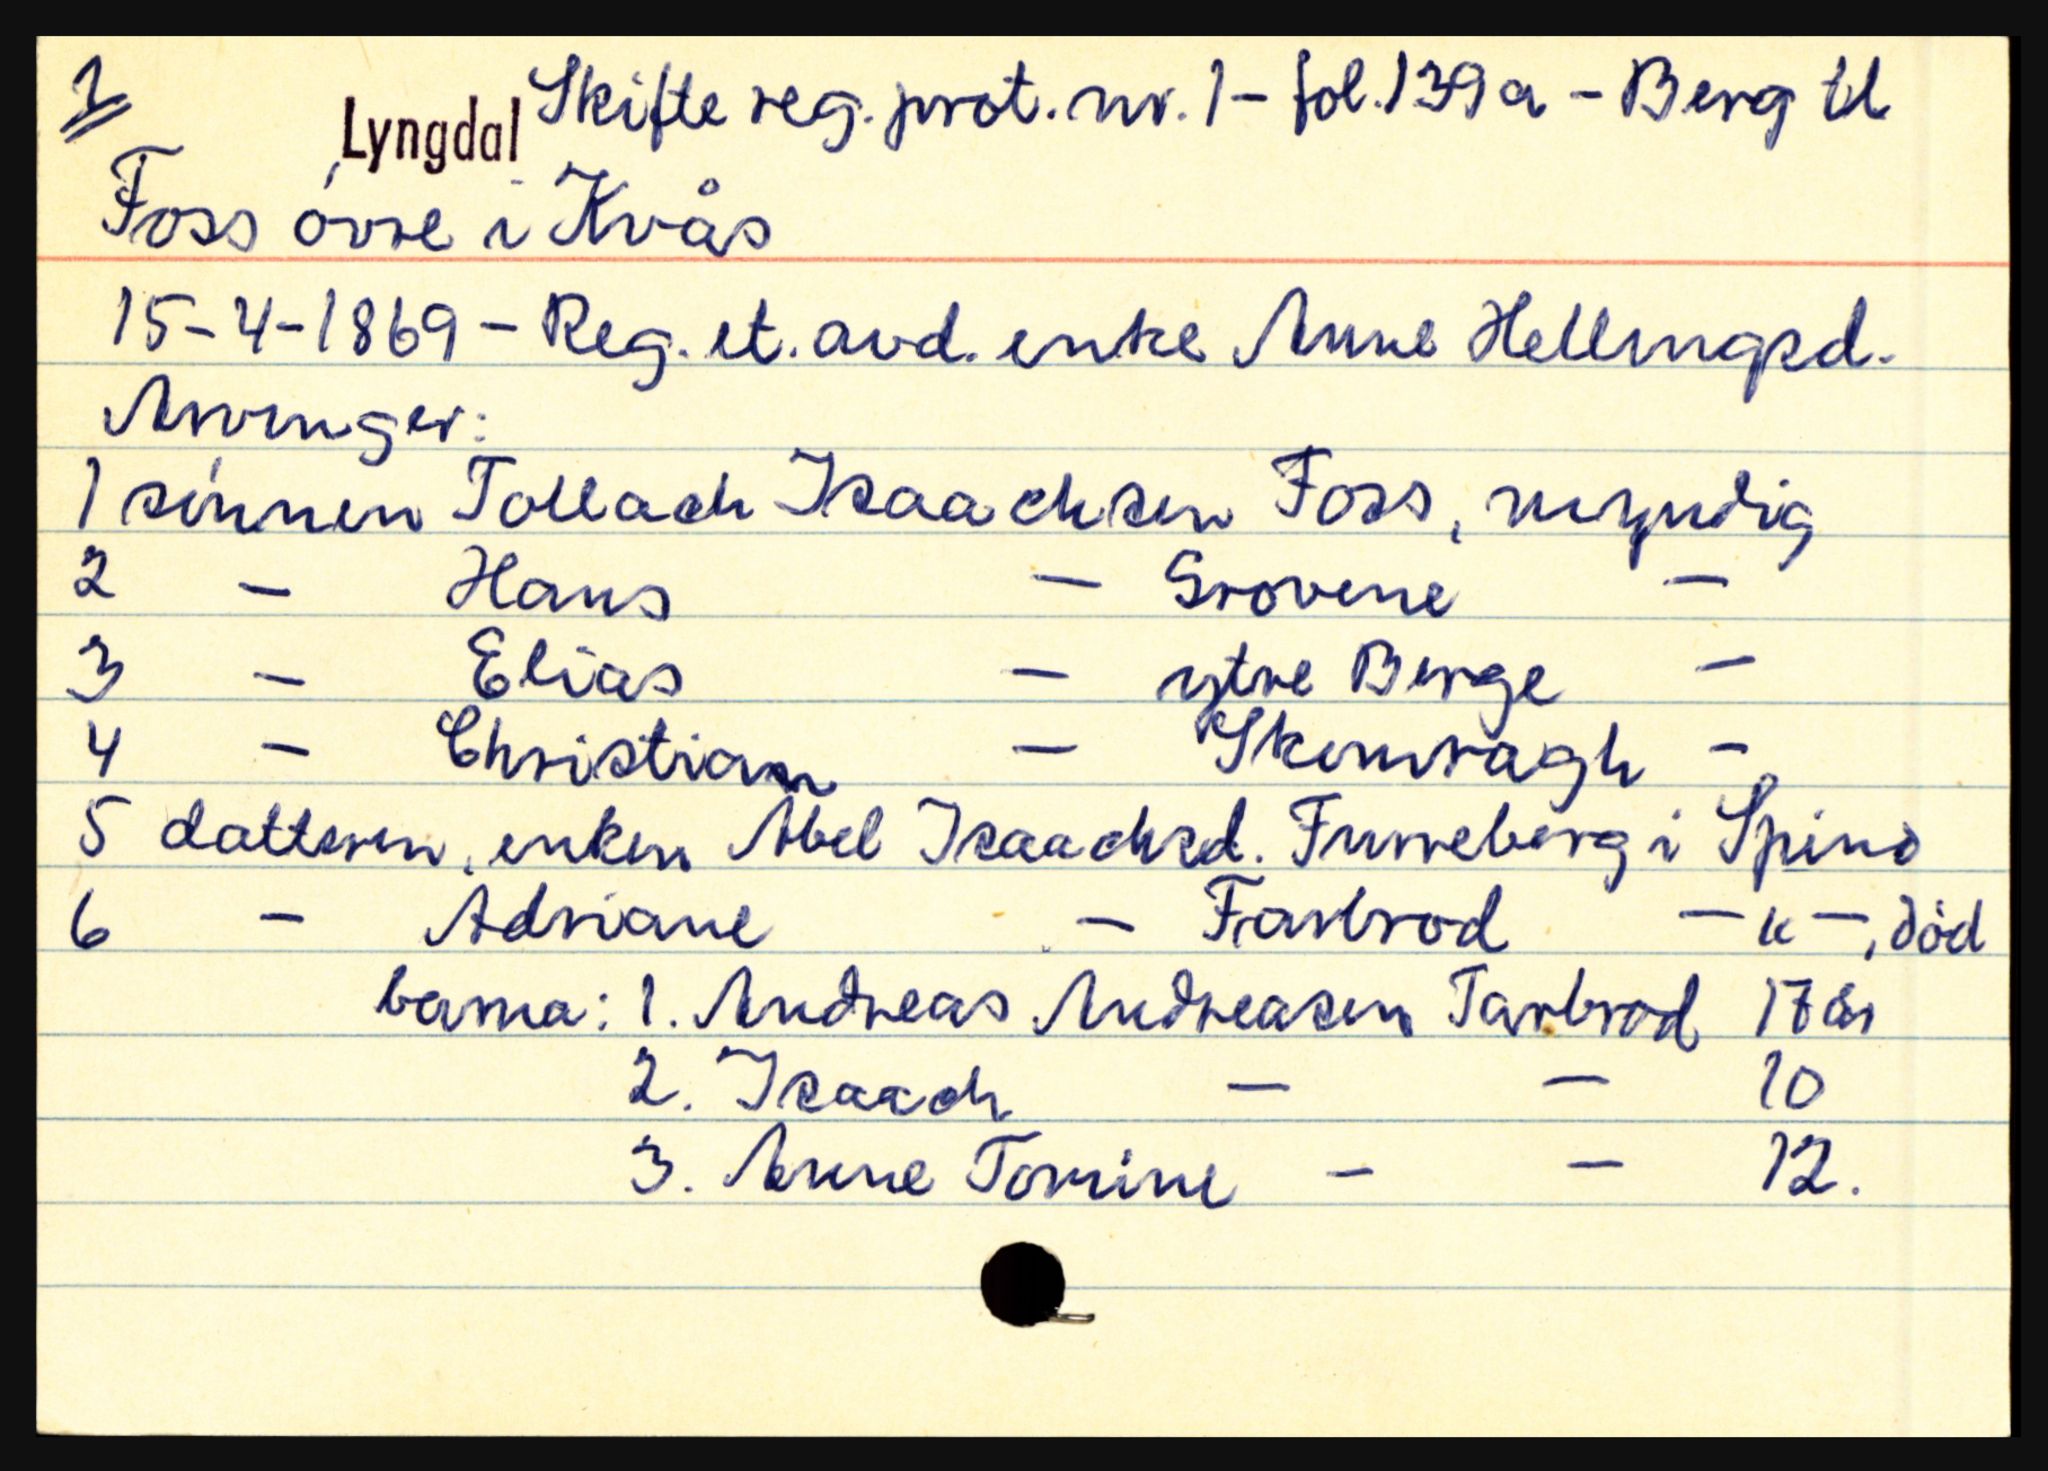 1
Lyngdal Skifte reg. prot. nr. 1 - fol. 139a - Berg tl
Foss óvre i Kvås
15-4-1869 - Reg. et. avd. enke Anne Hellingsd.
Arvinger:
1 sónnen Tollach Isaachsen Foss, myndig
2 - Hans - Grovene -
3 - Elias - ytre Berge -
4 - Christian - Skomragh -
5 datteren, enken Abel Isaachsd. Furreberg i Spind
6 - Adriane - Farbrod - " -, död
barna: 1. Andreas Andreasen Tarbrod 17 år
2. Isaach - - 10
3. Anne Tomine - - 12.